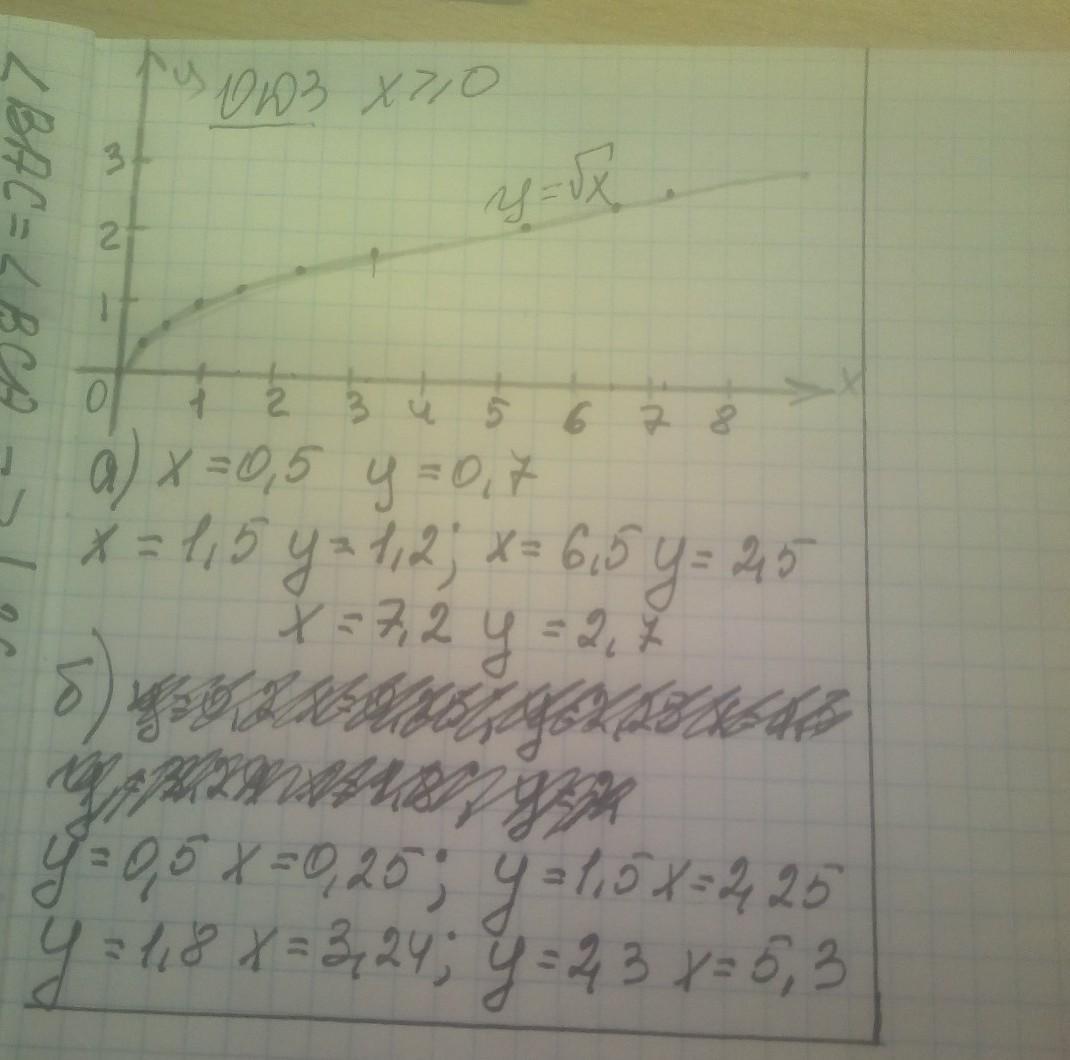 y x ⩾ 0
3
y = √x
2
1
0 1 2 3 4 5 6 7 8 x
а) x = 0,5 y = 0,7
x = 1,5 y = 1,2; x = 6,5 y = 2,5
x = 7,2 y = 2,7
б)
y = 0,5 x = 0,25; y = 1,5 x = 2,25
y = 1,8 x = 3,24; y = 2,3 x = 5,3
∠BAC = ∠BCA =